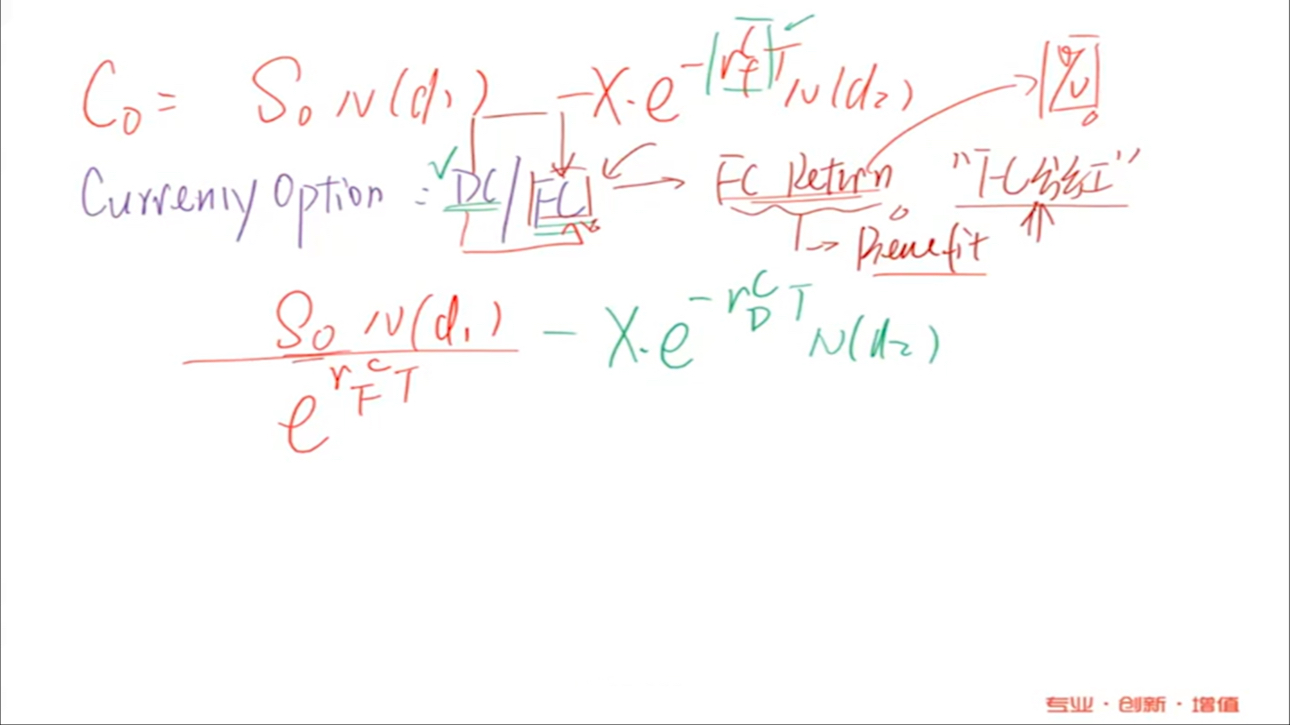 C₀ = S₀ N(d₁) — −X·e^{−r_f^C T} N(d₂)
Currency Option : DC/FC → FC Return "FC分红" %
→ Benefit
S₀ N(d₁) / e^{r_F^C T} − X·e^{−r_D^C T} N(d₂)
专业·创新·增值